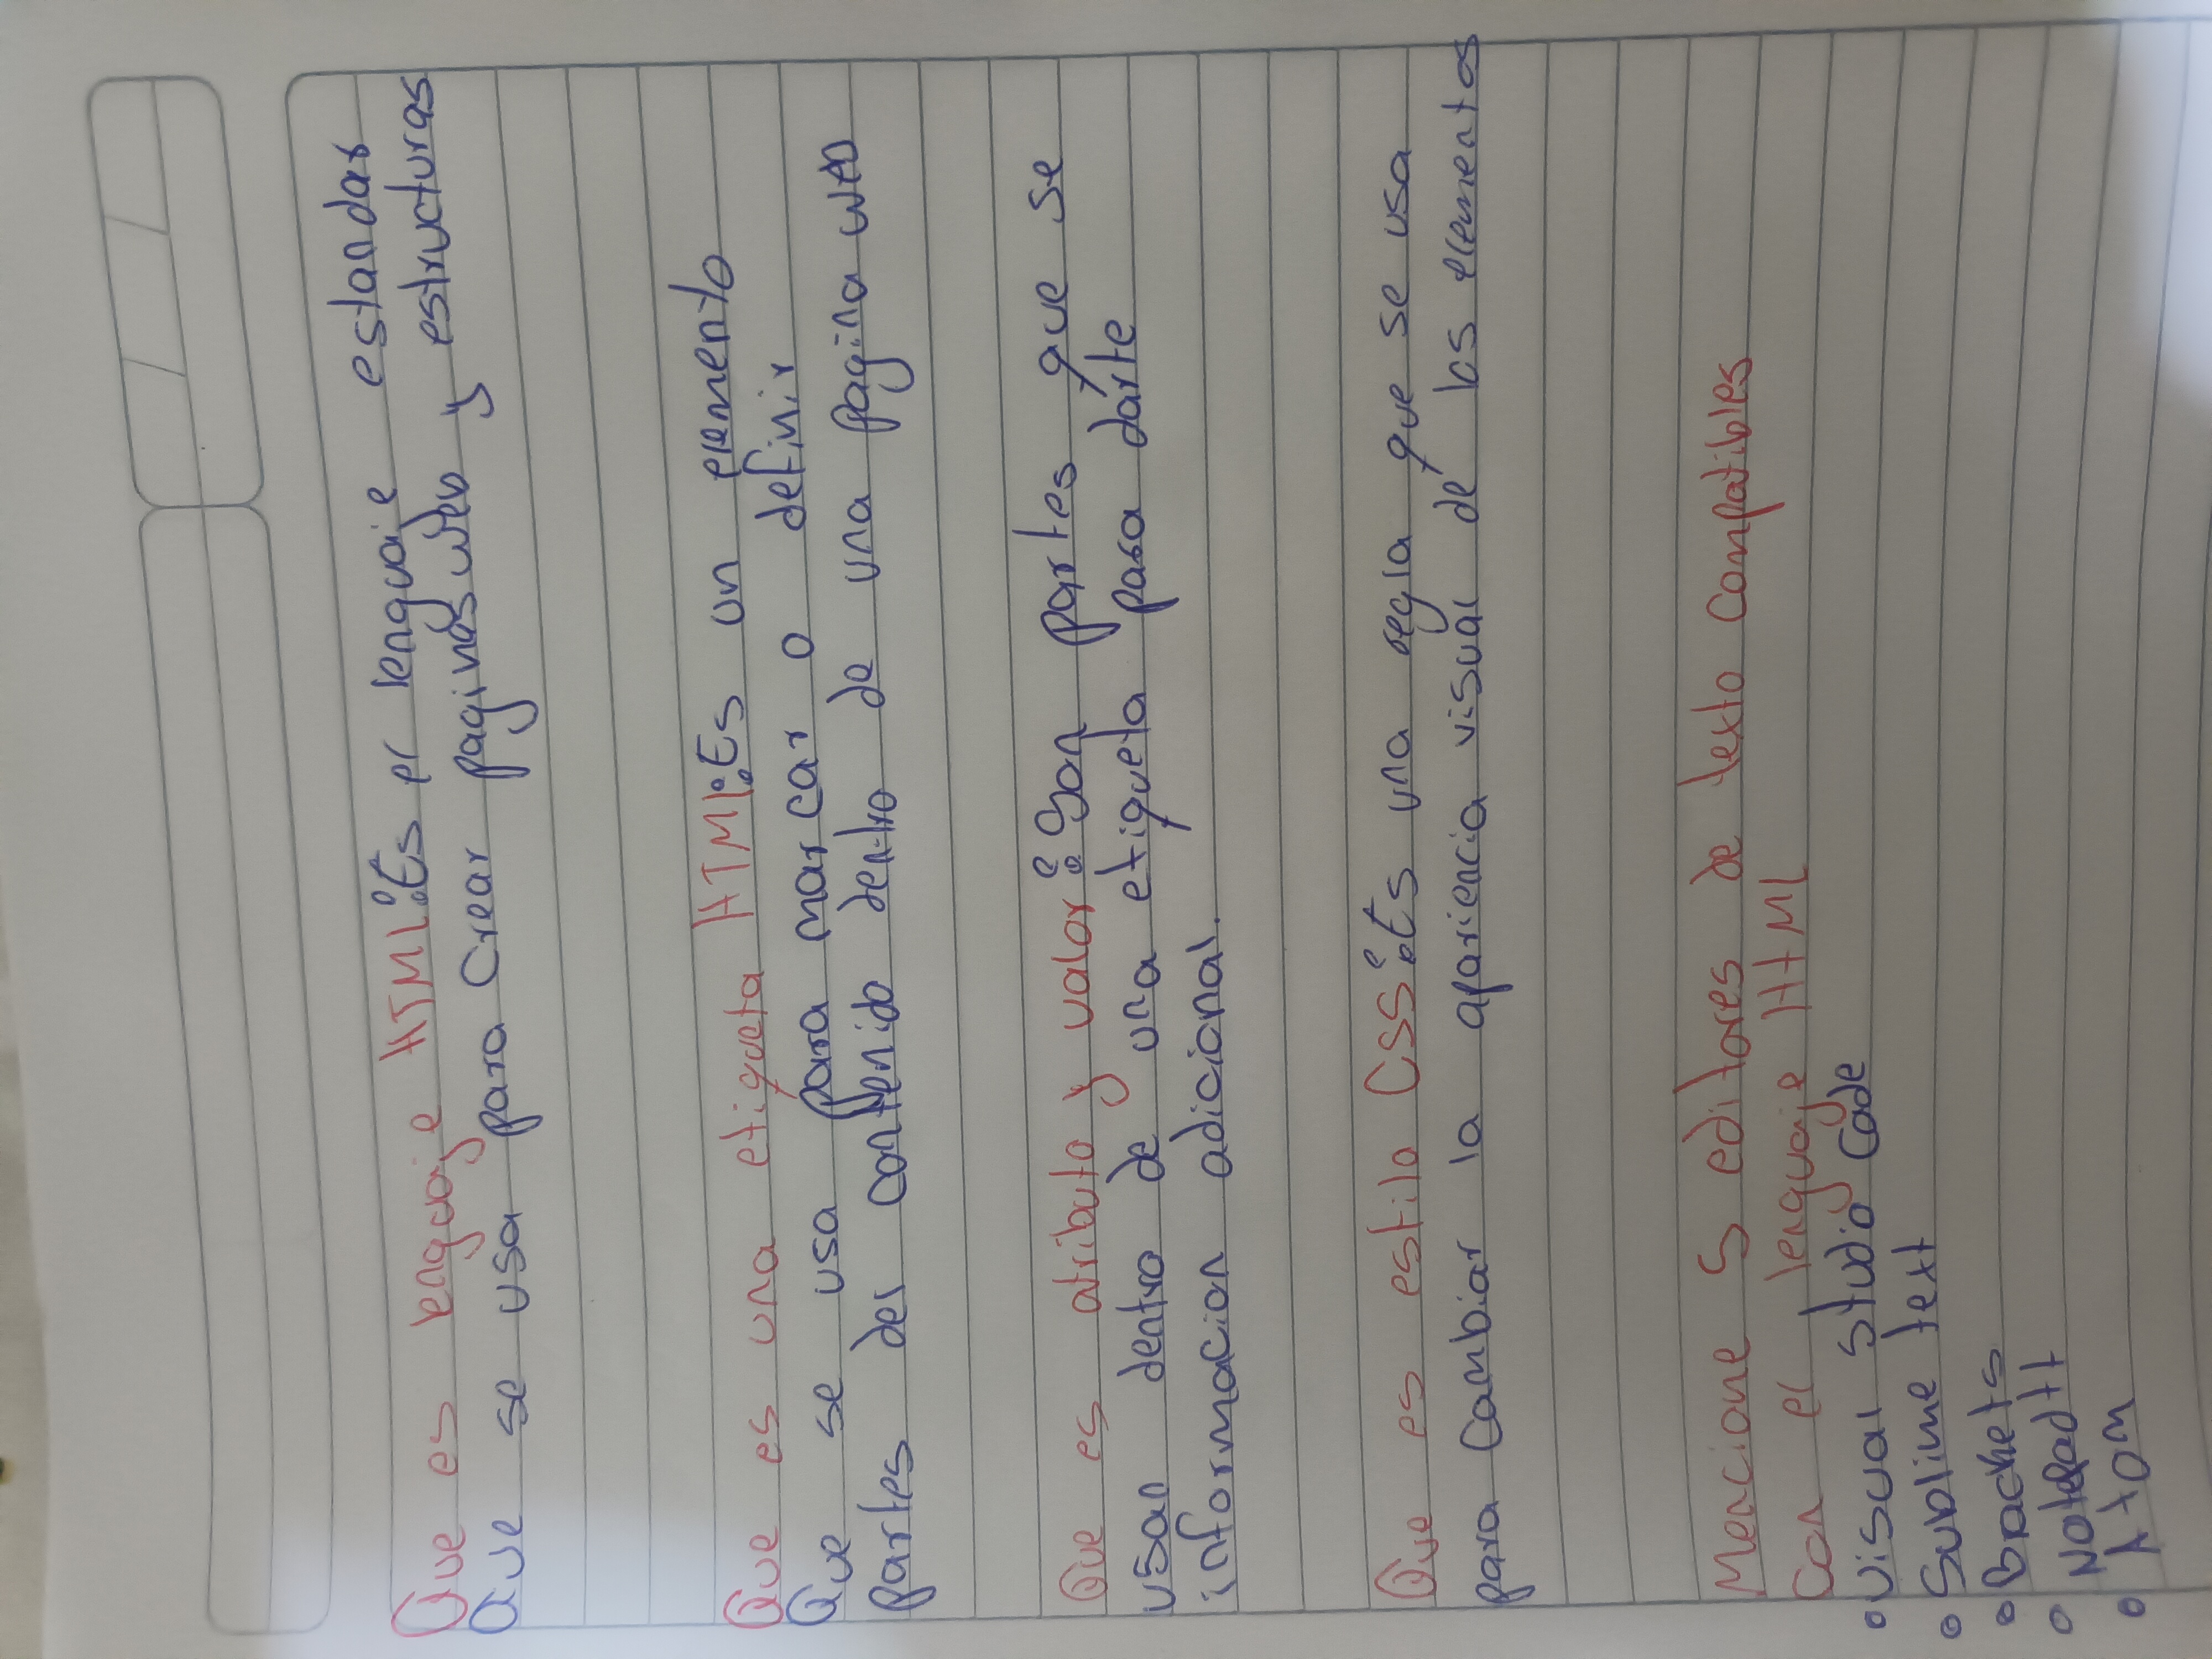 Que es lenguaje HTML: Es el lenguaje estandar
que se usa para Crear paginas web y estructuras
Que es una etiqueta HTML: Es un elemento
Que se usa para marcar o definir
partes del contenido dentro de una pagina web
Que es atributo y valor: Son partes que se
usan dentro de una etiqueta para darte
informacion adicional.
Que es estilo CSS: Es una regla que se usa
para Cambiar la apariencia visual de los elementos
Mencione 5 editores de texto Compatibles
Con el lenguaje HTML
• Visual studio Code
• Sublime text
• Brackets
• Notepad++
• Atom